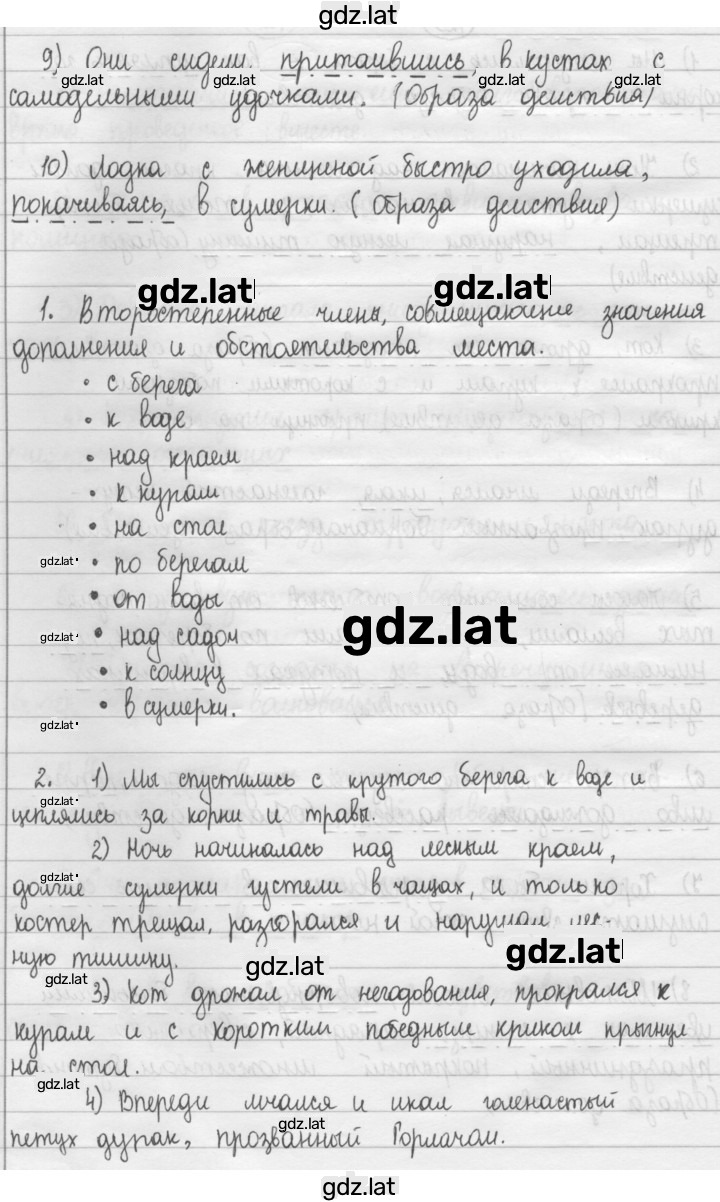 gdz.lat
9) Они сидели, притаившись, в кустах с
gdz.lat gdz.lat gdz.lat gdz.lat
самодельными удочками. (Образа действия)
10) Лодка с женщиной быстро уходила,
покачиваясь, в сумерки. (Образа действия)
gdz.lat gdz.lat
1. Второстепенные члены, совмещающие значения
дополнения и обстоятельства места.
• с берега
• к воде
• над краем
• к курам
• на стол
gdz.lat • по берегам
• от воды
gdz.lat • над садом
gdz.lat
• к солнцу
• в сумерки.
gdz.lat
2. 1) Мы спустились с крутого берега к воде и
gdz.lat
цеплялись за корни и травы.
2) Ночь начиналась над лесным краем,
gdz.lat
долгие сумерки густели в чащах, и только
костер трещал, разгорался и нарушал лес-
ную тишину.
gdz.lat gdz.lat gdz.lat
3) Кот дрожал от негодования, прокрался к
курам и с коротким победным криком прыгнул
на стол.
gdz.lat
4) Впереди мчался и икал голенастый
петух дурак, прозванный Горлачом.
gdz.lat